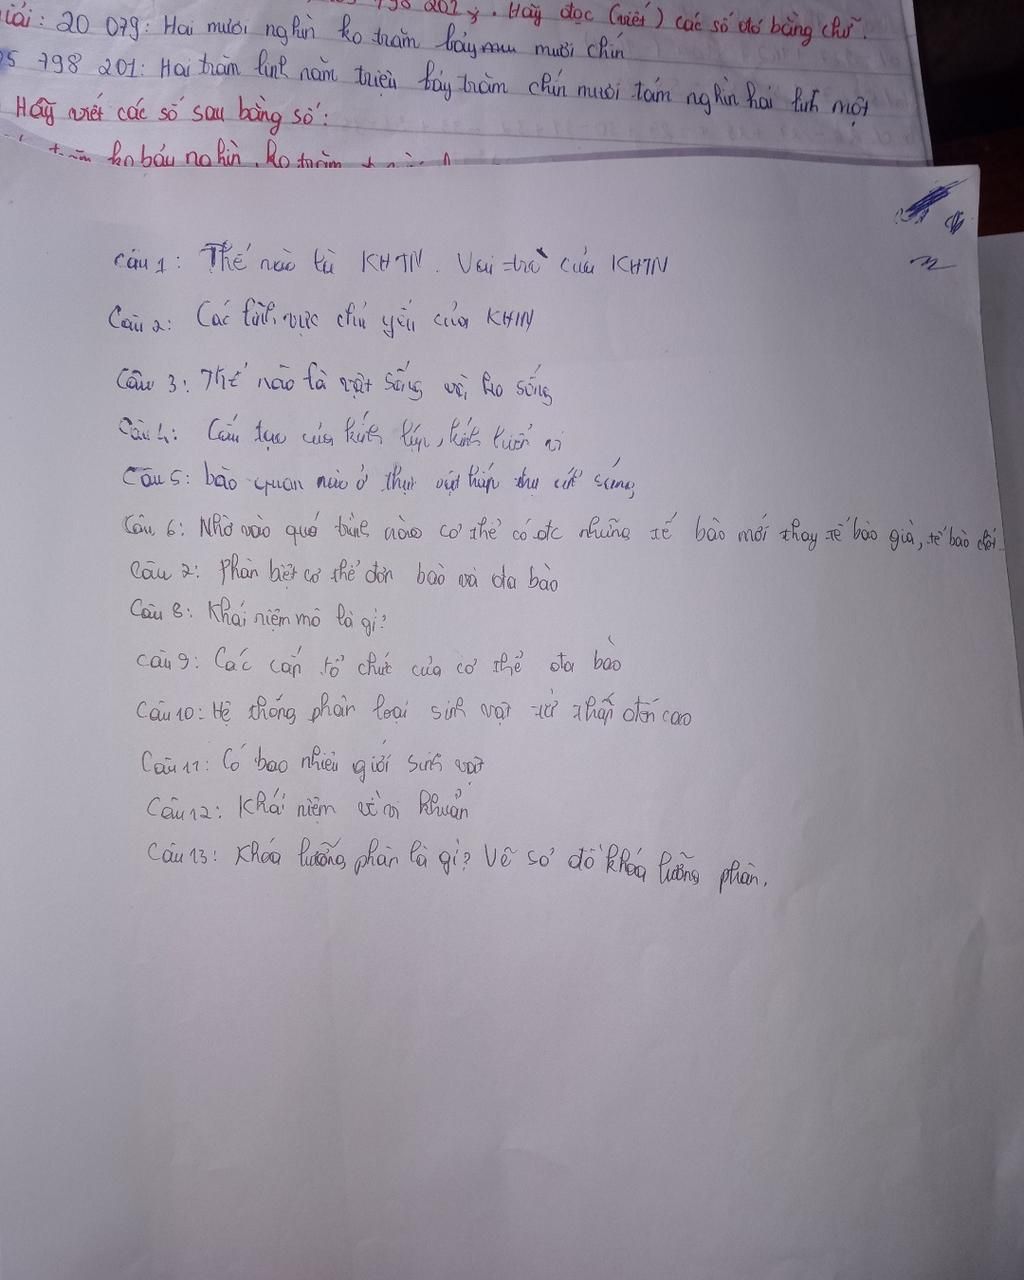 798 201 . Hãy đọc (viết) các số đó bằng chữ.
iải: 20 079: Hai mươi nghìn ko trăm bảy mươi chín
5 798 201: Hai trăm linh năm triệu bảy trăm chín mươi tám nghìn hai linh một
Hãy viết các số sau bằng số:
trăm ko bảy nghìn, ko trăm
Câu 1: Thế nào là KHTN. Vai trò của KHTN
Câu 2: Các lĩnh vực chủ yếu của KHTN
Câu 3: Thế nào là vật sống và ko sống
Câu 4: Cấu tạo của kính lúp, kính hiển vi
Câu 5: bào quan nào ở thực vật hấp thụ a/s sáng
Câu 6: Nhờ vào quá trình nào cơ thể có đc những tế bào mới thay tế bào già, tế bào chết
Câu 7: Phân biệt cơ thể đơn bào và đa bào
Câu 8: Khái niệm mô là gì?
Câu 9: Các cấp tổ chức của cơ thể đa bào
Câu 10: Hệ thống phân loại sinh vật từ thấp đến cao
Câu 11: Có bao nhiêu giới sinh vật
Câu 12: Khái niệm về vi khuẩn
Câu 13: Khóa lưỡng phân là gì? Vẽ sơ đồ khóa lưỡng phân.